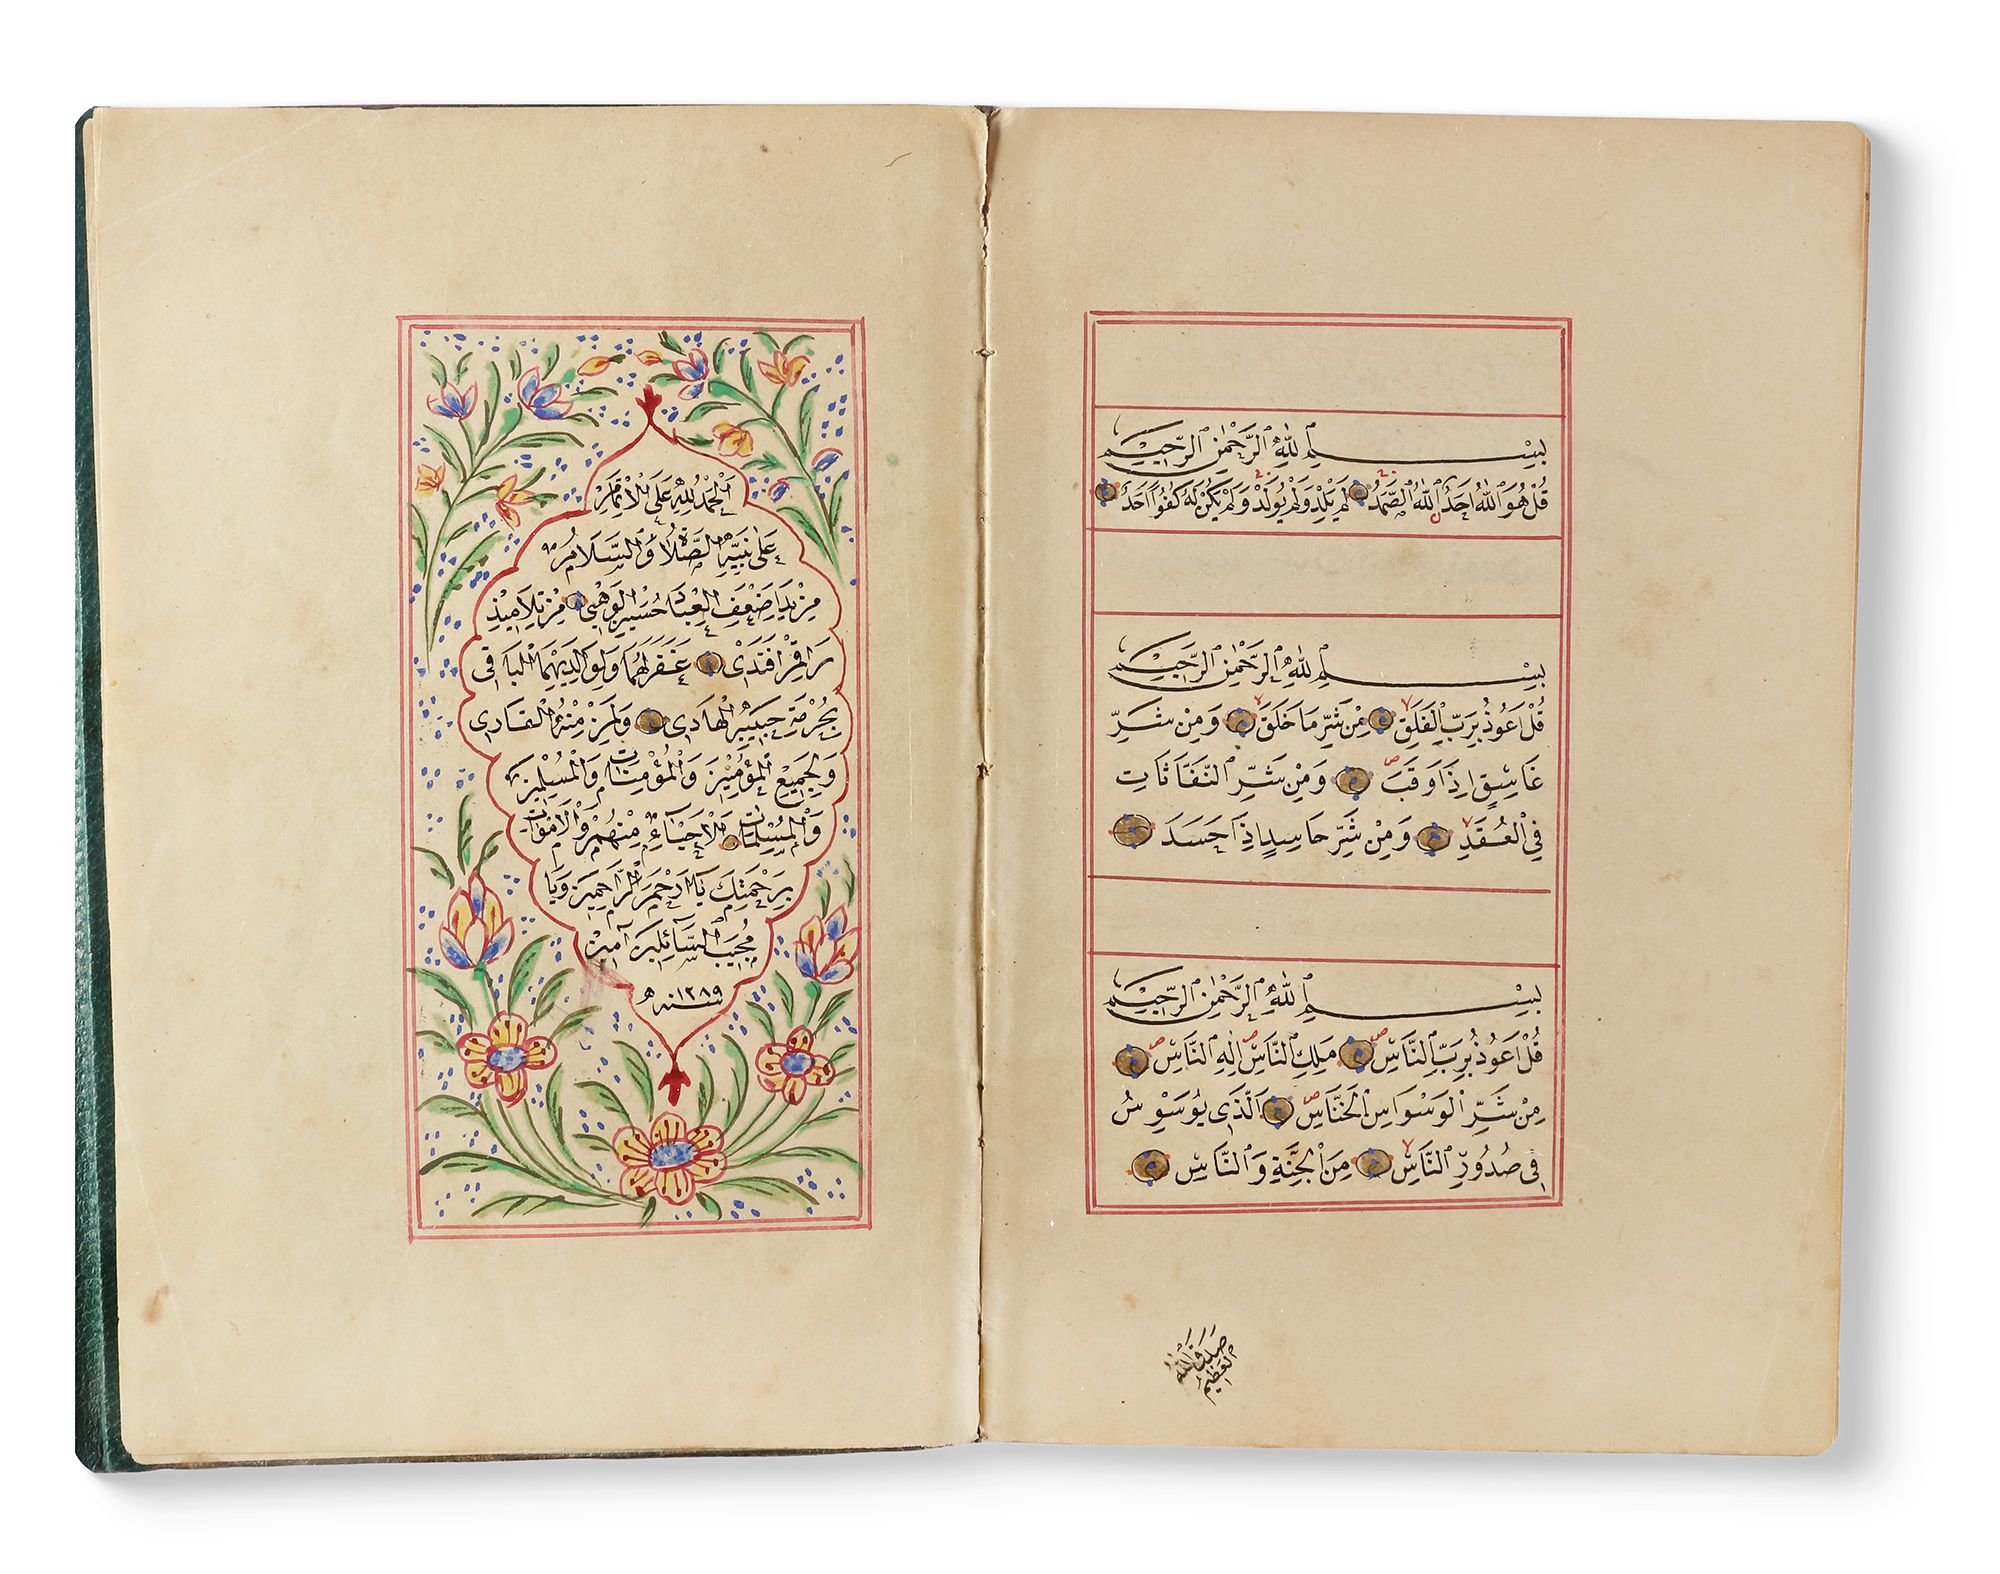 بِسْمِ اللّٰهِ الرَّحْمٰنِ الرَّحِيْمِ
قُلْ هُوَ اللّٰهُ اَحَدٌ اَللّٰهُ الصَّمَدُ لَمْ يَلِدْ وَلَمْ يُولَدْ وَلَمْ يَكُنْ لَهُ كُفُوًا اَحَدٌ
بِسْمِ اللّٰهِ الرَّحْمٰنِ الرَّحِيْمِ
قُلْ اَعُوذُ بِرَبِّ الْفَلَقِ مِنْ شَرِّ مَا خَلَقَ وَمِنْ شَرِّ
غَاسِقٍ اِذَا وَقَبَ وَمِنْ شَرِّ النَّفَّاثَاتِ
فِي الْعُقَدِ وَمِنْ شَرِّ حَاسِدٍ اِذَا حَسَدَ
بِسْمِ اللّٰهِ الرَّحْمٰنِ الرَّحِيْمِ
قُلْ اَعُوذُ بِرَبِّ النَّاسِ مَلِكِ النَّاسِ اِلٰهِ النَّاسِ
مِنْ شَرِّ الْوَسْوَاسِ الْخَنَّاسِ اَلَّذِى يُوَسْوِسُ
فِى صُدُورِ النَّاسِ مِنَ الْجِنَّةِ وَالنَّاسِ
صَدَقَ اللّٰهُ
الْعَظِيم
اَلْحَمْدُ لِلّٰهِ عَلَى الْاِتْمَامِ
عَلٰى نَبِيِّهِ الصَّلَاةُ وَالسَّلَامُ
مِنْ يَدِ اَضْعَفِ الْعِبَادِ حُسَيْنِ الْوَهْبِى مِنْ تَلَامِيذِ
اَفَنْدِى غَفَرَ لَهُمَا وَلِوَالِدِيْهِمَا الْبَاقِى
بِحُرْمَةِ حَبِيبِهِ الْهَادِى وَلِمَنْ مِنْهُ الْقَادِى
وَلِجَمِيعِ الْمُؤْمِنِينَ وَالْمُؤْمِنَاتِ وَالْمُسْلِمِينَ
وَالْمُسْلِمَاتِ اَلْاَحْيَاءِ مِنْهُمْ وَالْاَمْوَاتِ
بِرَحْمَتِكَ يَا اَرْحَمَ الرَّاحِمِينَ وَيَا
مُجِيبَ السَّائِلِينَ آمِينْ
سنه ١٢٨٩